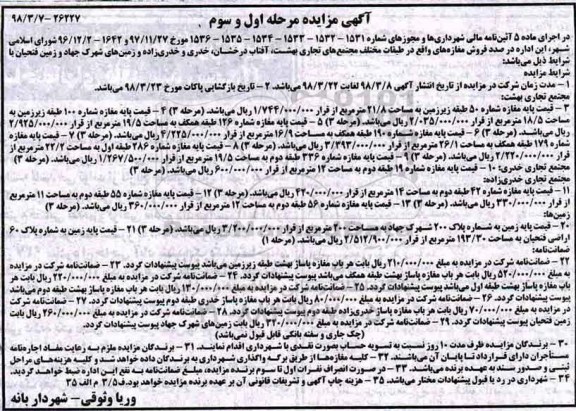 آگهی مزایده مرحله اول و سوم
۹۸/۳/۷-۲۶۲۲۷
در اجرای ماده ۵ آئین‌نامه مالی شهرداری‌ها و مجوزهای شماره ۱۵۳۱ - ۱۵۳۲ - ۱۵۳۳ - ۱۵۳۴ - ۱۵۳۵ - ۱۵۳۶ مورخ ۹۷/۱۱/۲۷ و ۱۶۴۲ - ۹۶/۱۲/۲ شورای اسلامی
شهر، این اداره در صدد فروش مغازه‌های واقع در طبقات مختلف مجتمع‌های تجاری بهشت، آفتاب درخشان، خدری و خدری‌زاده و زمین‌های شهرک جهاد و زمین فتحیان با
شرایط ذیل می‌باشد:
شرایط مزایده
۱ - مدت زمان شرکت در مزایده از تاریخ انتشار آگهی ۹۸/۳/۸ لغایت ۹۸/۳/۲۲ می‌باشد. ۲ - تاریخ بازگشایی پاکات مورخ ۹۸/۳/۲۳ می‌باشد.
مجتمع تجاری بهشت:
۳ - قیمت پایه مغازه شماره ۵۰ طبقه زیرزمین به مساحت ۲۱/۸ مترمربع از قرار ۱/۷۴۴/۰۰۰/۰۰۰ ریال می‌باشد. (مرحله ۳) ۴ - قیمت پایه مغازه شماره ۱۰۰ طبقه زیرزمین به
مساحت ۱۸/۵ مترمربع از قرار ۲/۰۳۵/۰۰۰/۰۰۰ ریال می‌باشد. (مرحله ۳) ۵ - قیمت پایه مغازه شماره ۱۲۶ طبقه همکف به مساحت ۱۹/۵ مترمربع از قرار ۲/۹۲۵/۰۰۰/۰۰۰
ریال می‌باشد. (مرحله ۳) ۶ - قیمت پایه مغازه شماره ۱۹۰ طبقه همکف به مساحت ۱۶/۹ مترمربع از قرار ۴/۲۲۵/۰۰۰/۰۰۰ ریال می‌باشد. (مرحله ۳) ۷ - قیمت پایه مغازه
شماره ۱۷۹ طبقه همکف به مساحت ۲۶/۱ مترمربع از قرار ۳/۳۹۳/۰۰۰/۰۰۰ ریال می‌باشد. (مرحله ۳) ۸ - قیمت پایه مغازه شماره ۲۸۶ طبقه اول به مساحت ۲۲/۲ مترمربع از
قرار ۲/۲۲۰/۰۰۰/۰۰۰ ریال می‌باشد. (مرحله ۳) ۹ - قیمت پایه مغازه شماره ۳۳۶ طبقه دوم به مساحت ۱۹/۵ مترمربع از قرار ۱/۲۶۷/۵۰۰/۰۰۰ ریال می‌باشد. (مرحله ۳)
مجتمع تجاری خدری: ۱۰ - قیمت پایه مغازه شماره ۱۹ طبقه دوم به مساحت ۱۲ مترمربع از قرار ۶۰۰/۰۰۰/۰۰۰ ریال می‌باشد. (مرحله ۳)
مجتمع تجاری خدری‌زاده:
۱۱ - قیمت پایه مغازه شماره ۴۲ طبقه دوم به مساحت ۱۴ مترمربع از قرار ۴۲۰/۰۰۰/۰۰۰ ریال می‌باشد. (مرحله ۳) ۱۲ - قیمت پایه مغازه شماره ۵۵ طبقه دوم به مساحت ۱۱ مترمربع
از قرار ۳۳۰/۰۰۰/۰۰۰ ریال می‌باشد. (مرحله ۳) ۱۳ - قیمت پایه مغازه شماره ۵۶ طبقه دوم به مساحت ۱۲ مترمربع از قرار ۳۶۰/۰۰۰/۰۰۰ ریال می‌باشد. (مرحله ۳)
زمین‌ها:
۲۰ - قیمت پایه زمین به شماره پلاک ۲۰۰ شهرک جهاد به مساحت ۲۰۰ مترمربع از قرار ۳/۲۰۰/۰۰۰/۰۰۰ ریال می‌باشد. (مرحله ۳) ۲۱ - قیمت پایه زمین به شماره پلاک ۶۰
اراضی فتحیان به مساحت ۱۹۳/۳۰ مترمربع از قرار ۲/۵۱۲/۹۰۰/۰۰۰ ریال می‌باشد. (مرحله ۱)
ضمانت‌نامه:
۲۲ - ضمانت‌نامه شرکت در مزایده به مبلغ ۲۱۰/۰۰۰/۰۰۰ ریال بابت هر باب مغازه پاساژ بهشت طبقه زیرزمین می‌باشد پیوست پیشنهادات گردد. ۲۳ - ضمانت‌نامه شرکت در مزایده
به مبلغ ۵۲۰/۰۰۰/۰۰۰ ریال بابت هر باب مغازه پاساژ بهشت طبقه همکف می‌باشد پیوست پیشنهادات گردد. ۲۴ - ضمانت‌نامه شرکت در مزایده به مبلغ ۲۲۰/۰۰۰/۰۰۰ ریال بابت هر
باب مغازه پاساژ بهشت طبقه اول می‌باشد پیوست پیشنهادات گردد. ۲۵ - ضمانت‌نامه شرکت در مزایده به مبلغ ۱۳۰/۰۰۰/۰۰۰ ریال بابت هر باب مغازه پاساژ بهشت طبقه دوم می‌باشد
پیوست پیشنهادات گردد. ۲۶ - ضمانت‌نامه شرکت در مزایده به مبلغ ۸۰/۰۰۰/۰۰۰ ریال بابت هر باب مغازه پاساژ خدری طبقه دوم پیوست پیشنهادات گردد. ۲۷ - ضمانت‌نامه شرکت
در مزایده به مبلغ ۷۰/۰۰۰/۰۰۰ ریال بابت هر باب مغازه پاساژ خدری‌زاده طبقه دوم پیوست پیشنهادات گردد. ۲۸ - ضمانت‌نامه شرکت در مزایده به مبلغ ۲۶۰/۰۰۰/۰۰۰ ریال بابت
زمین فتحیان پیوست پیشنهادات گردد. ۲۹ - ضمانت‌نامه شرکت در مزایده به مبلغ ۳۲۰/۰۰۰/۰۰۰ ریال بابت زمین‌های شهرک جهاد پیوست پیشنهادات گردد.
(چک جاری و سفته بانکی قابل قبول نمی‌باشد)
۳۰ - برندگان مزایده ظرف مدت ۱۰ روز نسبت به تسویه حساب بصورت نقدی با شهرداری اقدام نمایند. ۳۱ - برندگان مزایده ملزم به رعایت مفاد اجاره‌نامه
مستأجران دارای قرارداد تا پایان آن می‌باشند. ۳۲ - کلیه مغازه‌ها از طریق برگه واگذاری شهرداری به برندگان داده خواهد شد و کلیه هزینه‌های مراحل
ثبتی و صدور سند به عهده برنده می‌باشد. ۳۳ - در صورت انصراف نفرات اول تا سوم برنده مزایده، مبلغ ضمانت‌نامه به نفع این اداره ضبط خواهد گردید.
۳۴ - شهرداری در رد یا قبول پیشنهادات مختار می‌باشد. ۳۵ - هزینه چاپ آگهی و تشریفات قانونی آن بر عهده برنده مزایده خواهد بود. ف۳/۵ م الف ۳۵
وریا وثوقی - شهردار بانه